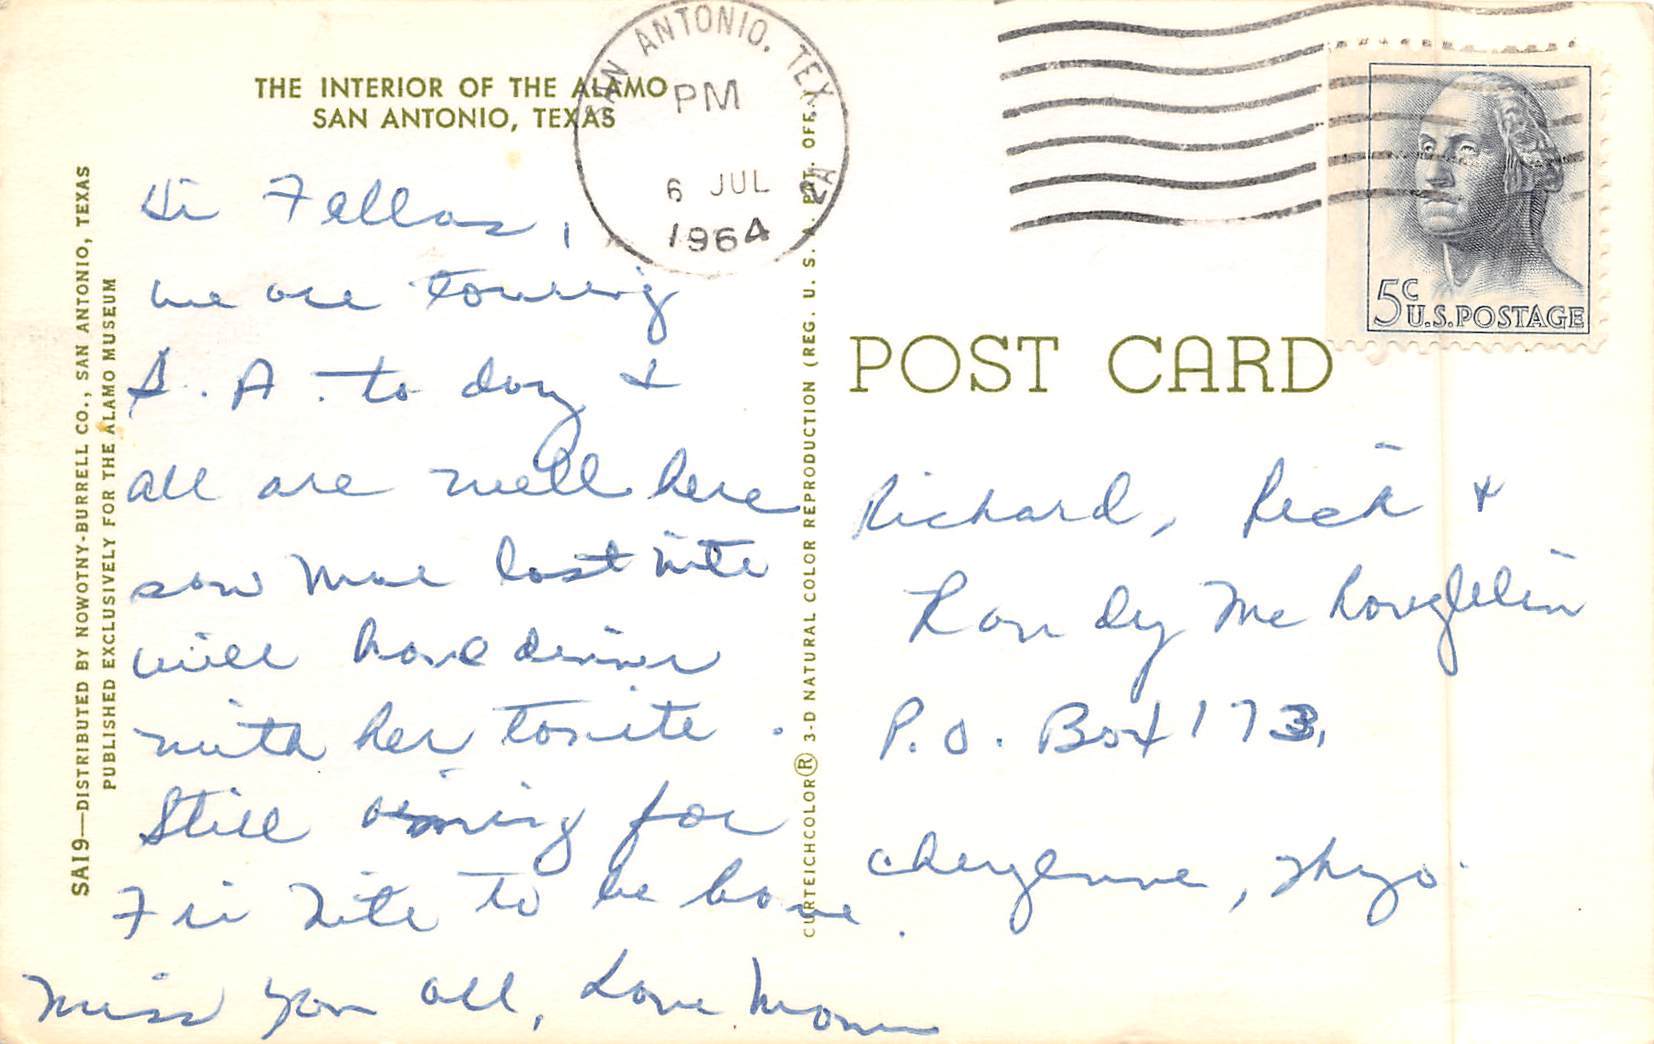 THE INTERIOR OF THE ALAMO
SAN ANTONIO, TEXAS
SAN ANTONIO, TEX.
PM
6 JUL
1964
5c
U.S. POSTAGE
POST CARD
Hi Fellas,
we are touring
S.A. to day &
all are well here
saw Mae last nite
will have dinner
with her tonite.
Still aiming for
Fri nite to be home.
Miss you all, Love Mom
Richard, Rick &
Randy McLoughlin
P.O. Box 173,
Cheyenne, Wyo.
SA19—DISTRIBUTED BY NOWOTNY-BURRELL CO., SAN ANTONIO, TEXAS
PUBLISHED EXCLUSIVELY FOR THE ALAMO MUSEUM
CURTEICHCOLOR® 3-D NATURAL COLOR REPRODUCTION (REG. U. S. A. PAT. OFF.)